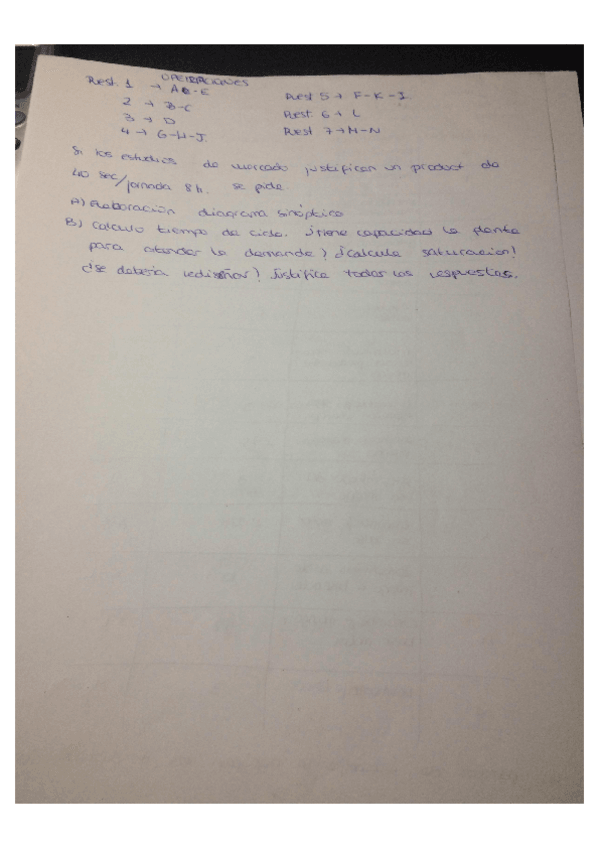 OPERACIONES
Rest. 1 → A-E
2 → B-C
3 → D
4 → G-H-J.
Rest 5 → F-K-I
Rest. 6 → L
Rest 7 → M-N
Si los estudios de mercado justifican un product de
40 sec/jornada 8h. se pide
A) Elaboración diagrama sinóptico
B) Calculo tiempo de ciclo. ¿Tiene capacidad la planta
para atender la demanda? ¿calcula saturacion?
¿se deberia rediseñar? Justifica todas las respuestas.